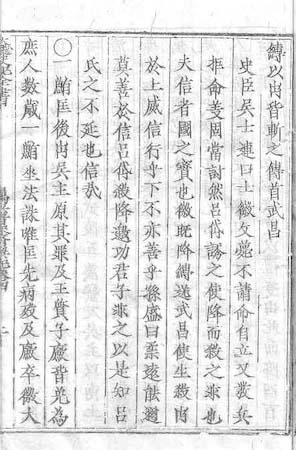 縛以出皆斬之傳首武昌
史臣吳士連曰士徽父薨不請命自立又發兵
拒命固當討然呂岱誘之使降而殺之非也
夫信者國之寶也徽既降縛送武昌使生殺出
於上威信行乎下不亦善乎孫盛曰柔遠能邇
莫善於信呂岱殺降邀功君子非之以是知呂
氏之不延也信哉
〇一鮪匡後出吳主原其罪及王質子廞皆免為
庶人數歲一鮪坐法誅唯匡先病歿及廞卒徽大